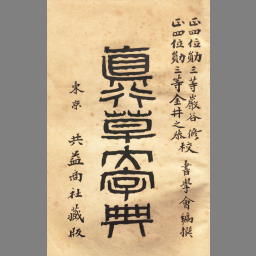 正四位勲三等巖谷修校
正四位勲三等金井之恭校
書學會編撰
真行草大字典
東京 共益商社藏版